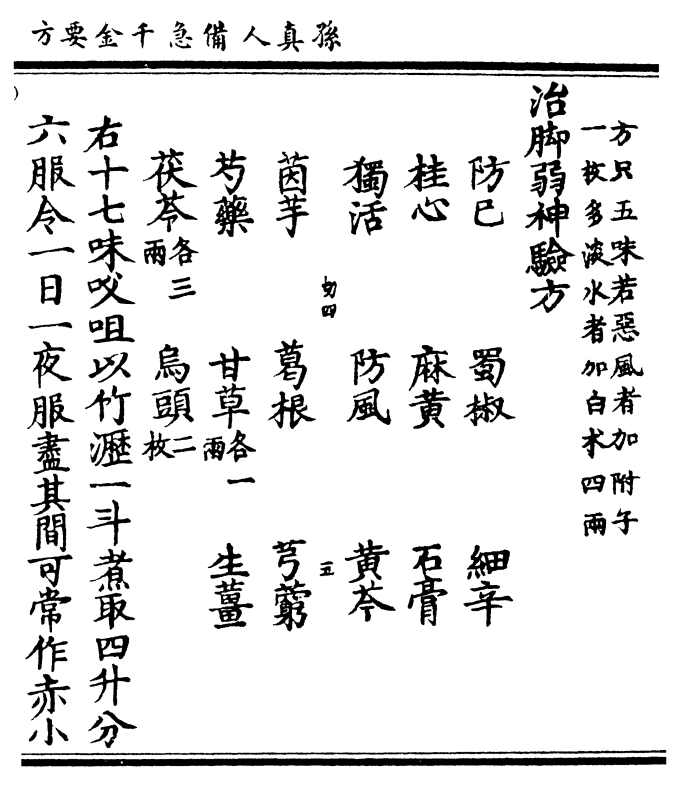 孫真人備急千金要方
方只五味若惡風者加附子
一枚多淡水者加白术四兩
治脚弱神驗方
防巳 蜀椒 細辛
桂心 麻黄 石膏
獨活 防風 黄芩
四 五
茵芋 葛根 芎藭
芍藥 甘草各一兩 生薑
茯苓各三兩 烏頭二枚
右十七味㕮咀以竹瀝一斗煮取四升分
六服令一日一夜服盡其間可常作赤小